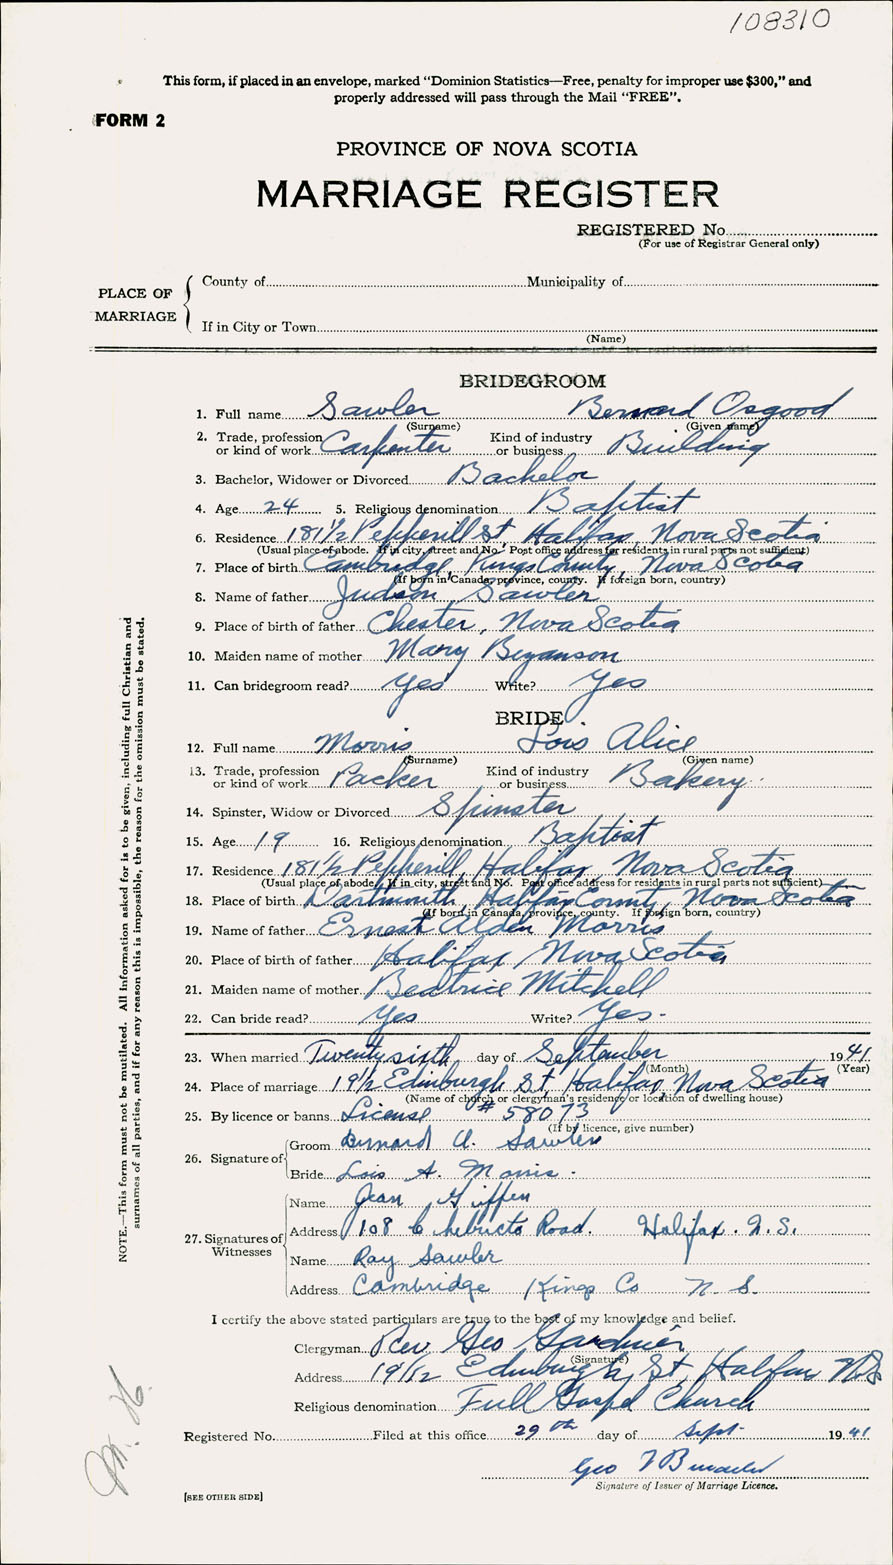 108310
This form, if placed in an envelope, marked “Dominion Statistics—Free, penalty for improper use $300,” and
properly addressed will pass through the Mail “FREE”.
FORM 2
PROVINCE OF NOVA SCOTIA
MARRIAGE REGISTER
REGISTERED No.
(For use of Registrar General only)
PLACE OF MARRIAGE
County of Municipality of
If in City or Town
(Name)
BRIDEGROOM
1. Full name Sawler Bernard Osgood
(Surname) (Given name)
2. Trade, profession or kind of work Carpenter Kind of industry or business Building
3. Bachelor, Widower or Divorced Bachelor
4. Age 24 5. Religious denomination Baptist
6. Residence 181½ Pepperill St, Halifax, Nova Scotia
(Usual place of abode. If in city, street and No. Post office address for residents in rural parts not sufficient)
7. Place of birth Cambridge, Kings County, Nova Scotia
(If born in Canada, province, county. If foreign born, country)
8. Name of father Judson Sawler
9. Place of birth of father Chester, Nova Scotia
10. Maiden name of mother Mary Bezanson
11. Can bridegroom read? Yes Write? Yes
BRIDE
12. Full name Morris Lois Alice
(Surname) (Given name)
13. Trade, profession or kind of work Packer Kind of industry or business Bakery
14. Spinster, Widow or Divorced Spinster
15. Age 19 16. Religious denomination Baptist
17. Residence 181½ Pepperill, Halifax, Nova Scotia
(Usual place of abode. If in city, street and No. Post office address for residents in rural parts not sufficient)
18. Place of birth Dartmouth, Halifax County, Nova Scotia
(If born in Canada, province, county. If foreign born, country)
19. Name of father Ernest Alden Morris
20. Place of birth of father Halifax, Nova Scotia
21. Maiden name of mother Beatrice Mitchell
22. Can bride read? Yes Write? Yes
23. When married Twenty sixth day of September 1941
(Month) (Year)
24. Place of marriage 19½ Edinburgh St, Halifax, Nova Scotia
(Name of church or clergyman's residence or location of dwelling house)
25. By licence or banns License # 58073
(If by licence, give number)
26. Signature of Groom Bernard O. Sawler
Bride Lois A. Morris
27. Signatures of Witnesses
Name Jean Giffen
Address 108 Chebucto Road. Halifax. N.S.
Name Ray Sawler
Address Cambridge Kings Co N.S.
I certify the above stated particulars are true to the best of my knowledge and belief.
Clergyman Rev Geo Gardner
(Signature)
Address 19½ Edinburgh St, Halifax N.S
Religious denomination Full Gospel Church
Registered No. Filed at this office 29th day of Sept. 1941
Geo
Signature of Issuer of Marriage Licence.
[SEE OTHER SIDE]
NOTE.—This form must not be mutilated. All information asked for is to be given, including full Christian and
surnames of all parties, and if for any reason this is impossible, the reason for the omission must be stated.